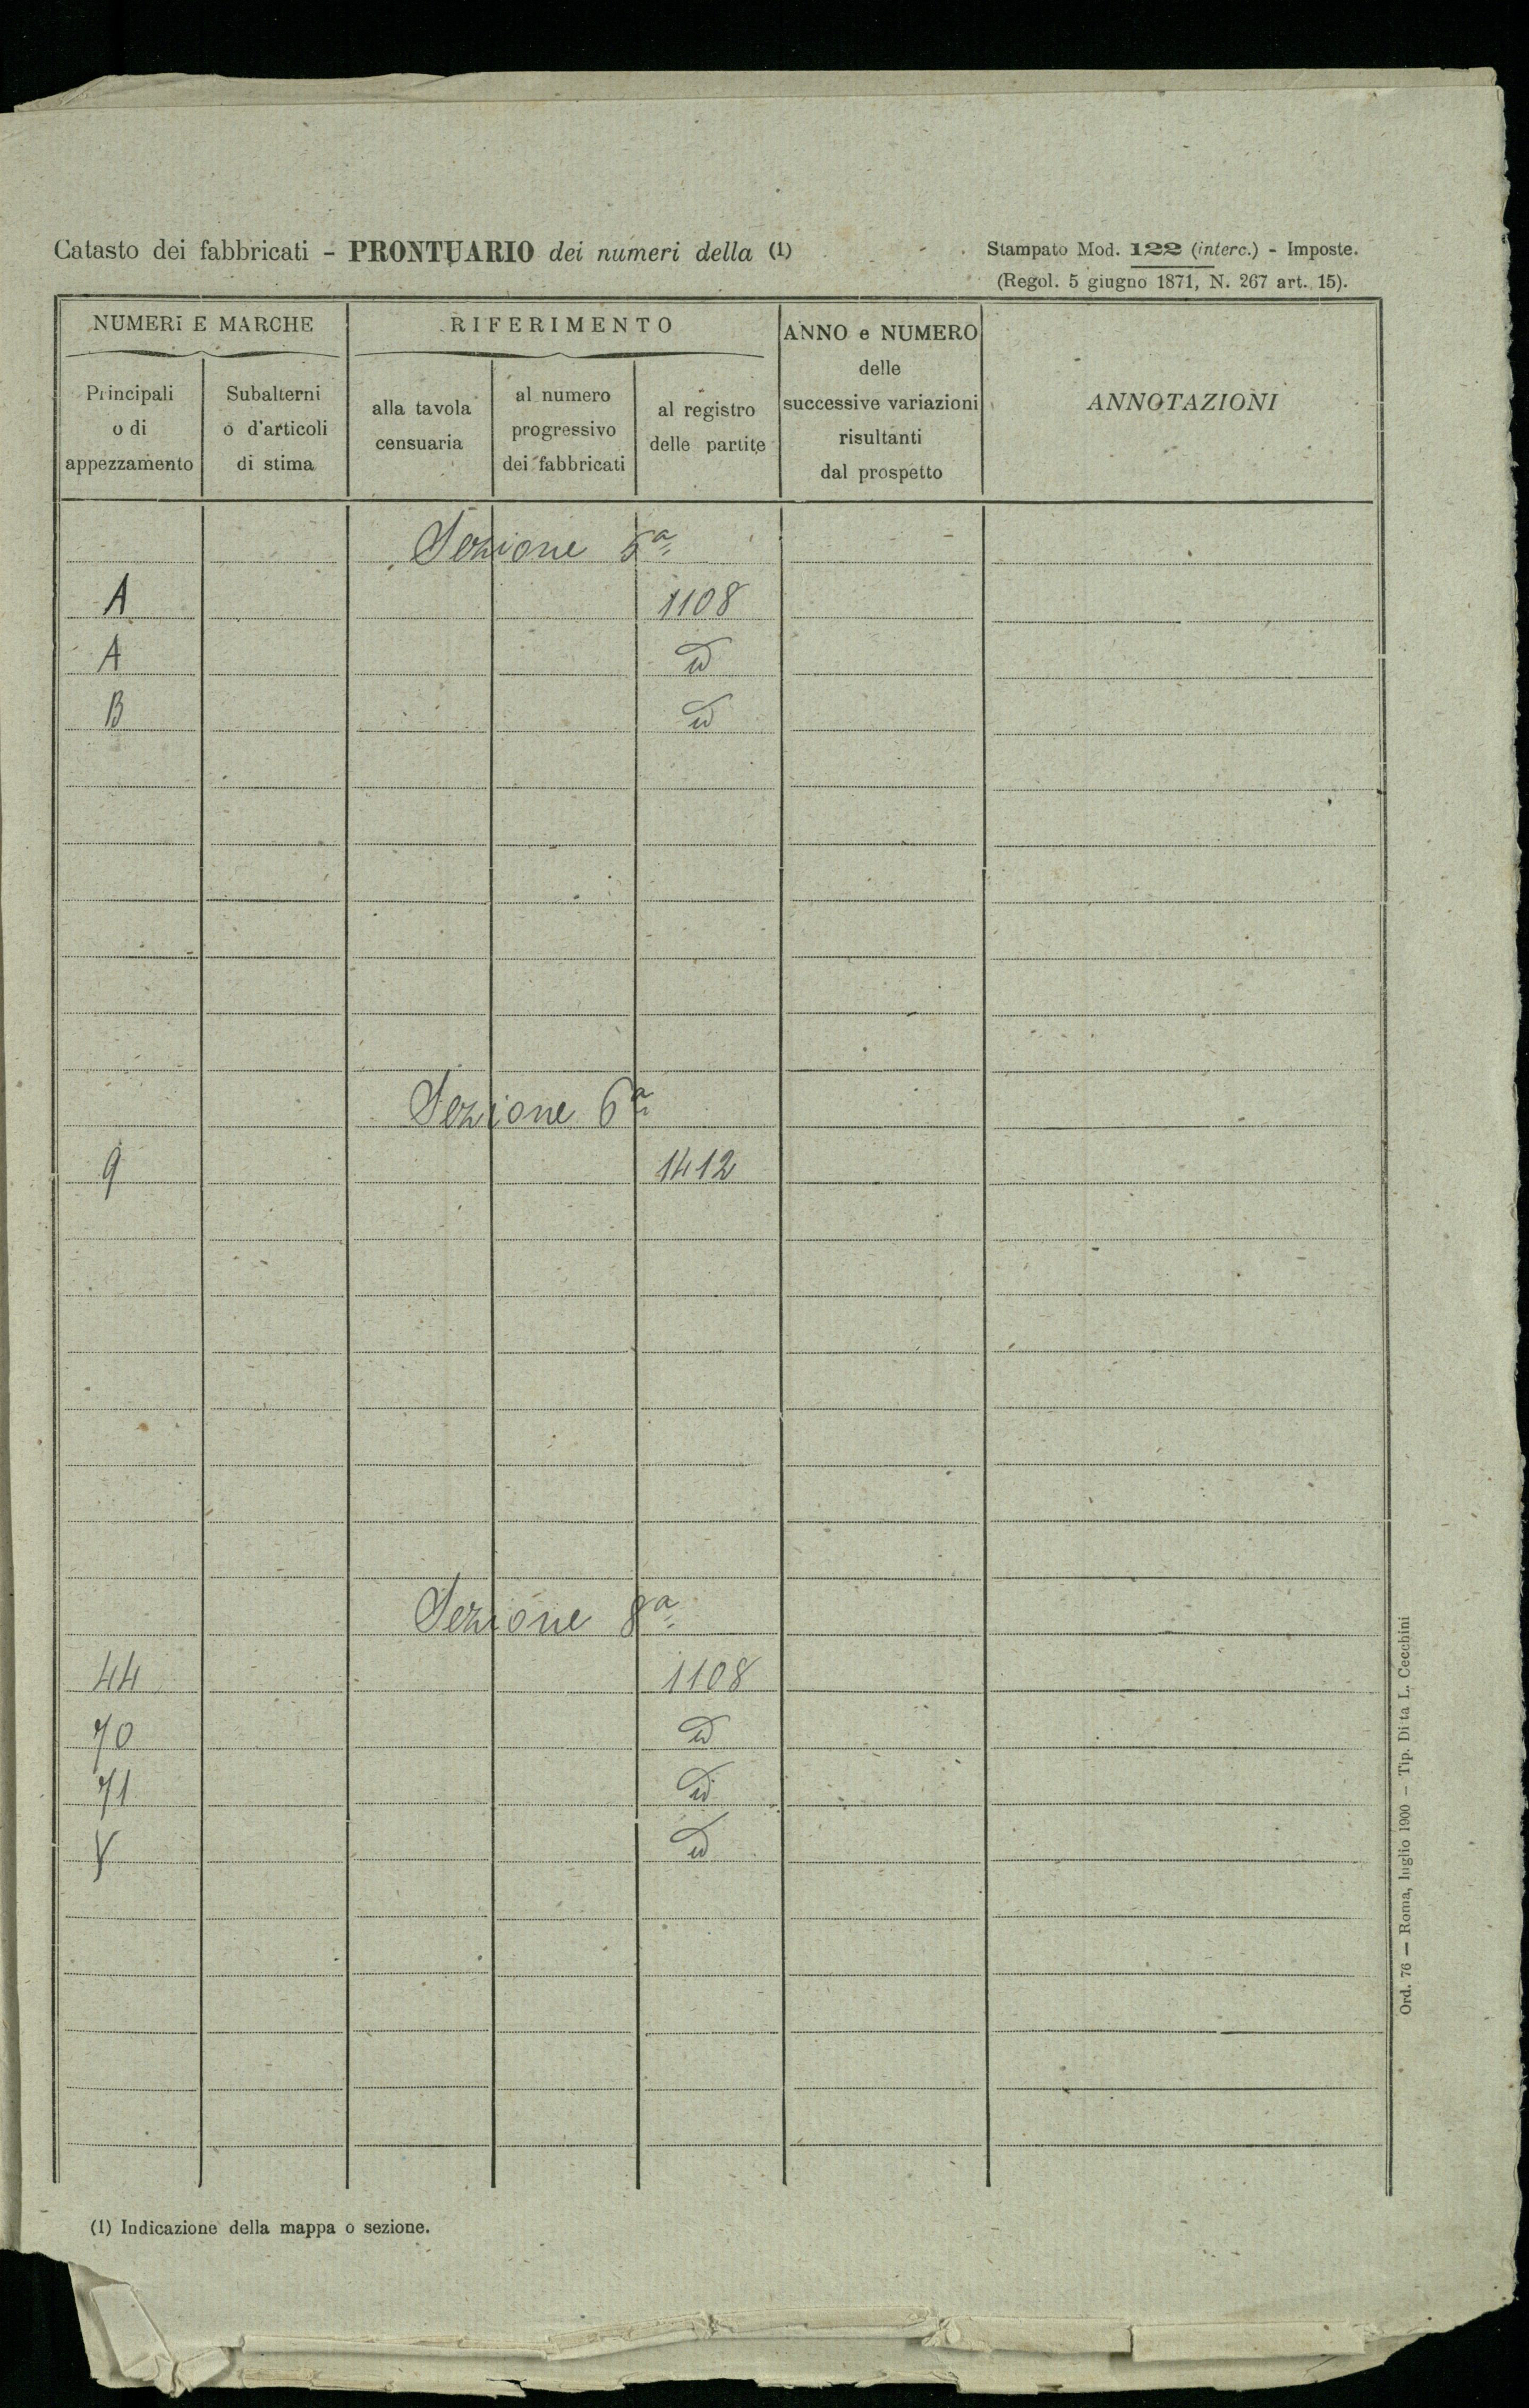 Catasto dei fabbricati - PRONTUARIO dei numeri della (1)
Stampato Mod. 122 (interc.) - Imposte.
(Regol. 5 giugno 1871, N. 267 art. 15).
NUMERI E MARCHE
RIFERIMENTO
ANNO e NUMERO
delle
successive variazioni
risultanti
dal prospetto
ANNOTAZIONI
Principali
o di
appezzamento
Subalterni
o d'articoli
di stima
alla tavola
censuaria
al numero
progressivo
dei fabbricati
al registro
delle partite
Sezione 5a
A 1108
A id
B id
Sezione 6a
9 1412
Sezione 8a
44 1108
70 id
71 id
id
(1) Indicazione della mappa o sezione.
Ord. 76 — Roma, luglio 1900 — Tip. Ditta L. Cecchini